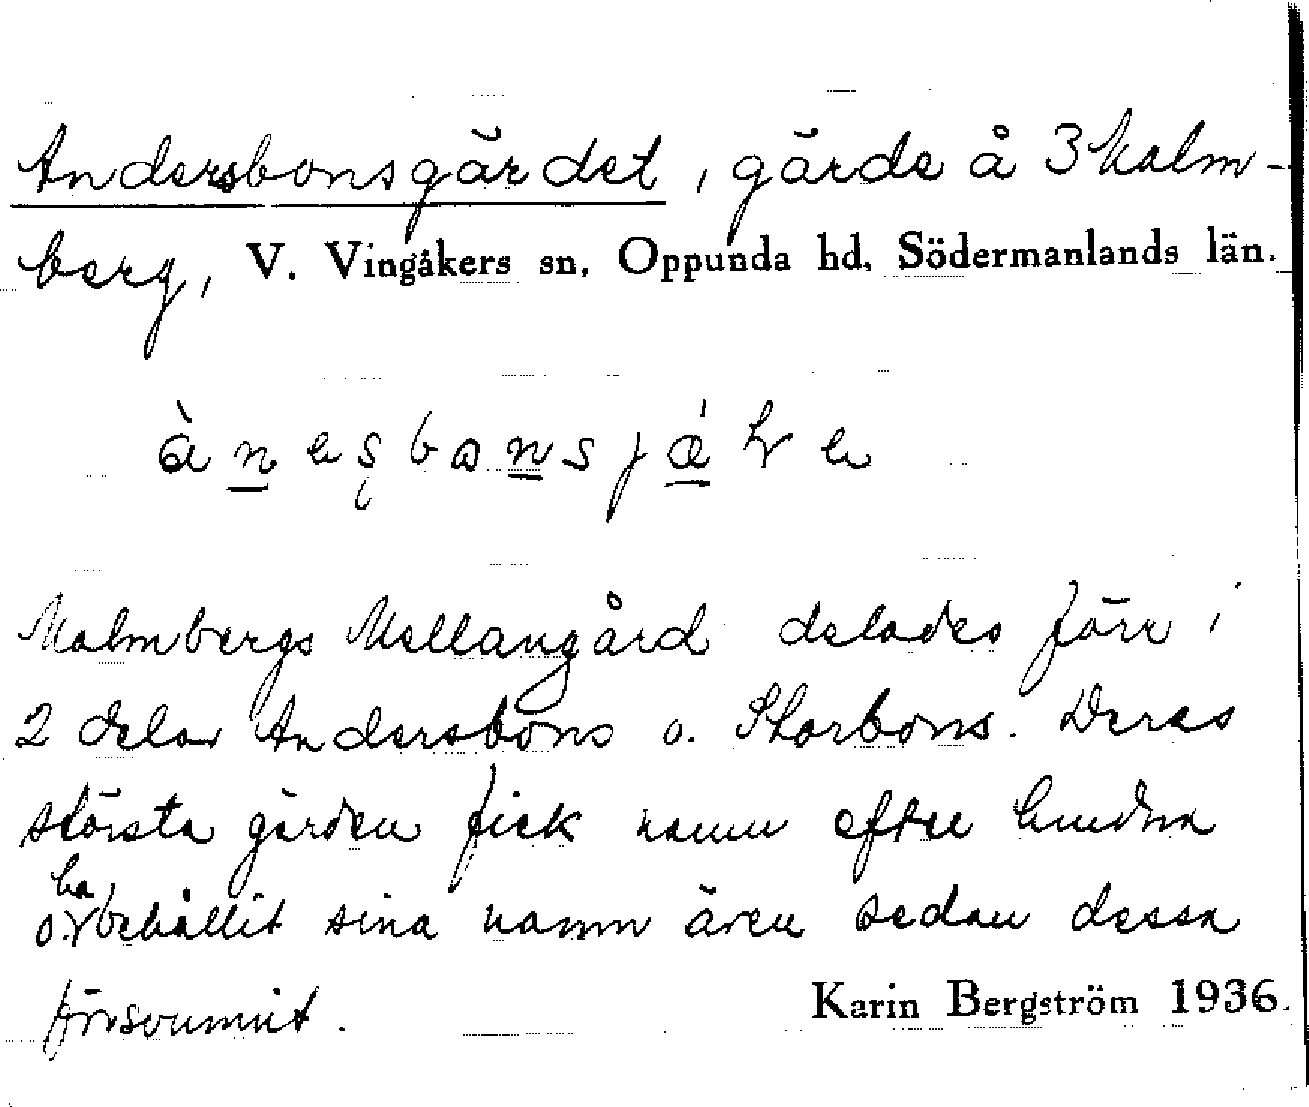 Andersbonsgärdet, gärde å 3 Malm-
berg, V. Vingåkers sn, Oppunda hd, Södermanlands län.
Malmbergs Mellangård delades förr i
2 delar Andersbons o. Storbons. Deras
största gärden fick namn efter
o. ha behållit sina namn även sedan dessa
försvunnit.
Karin Bergström 1936.